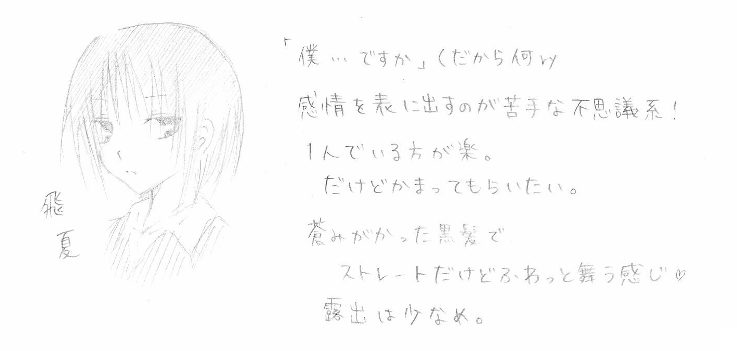 「僕…ですか」(だから何ッ
感情を表に出すのが苦手な不思議系！
1人でいる方が楽。
だけどかまってもらいたい。
蒼みがかった黒髪で
ストレートだけどふわっと舞う感じ♡
露出は少なめ。
飛夏